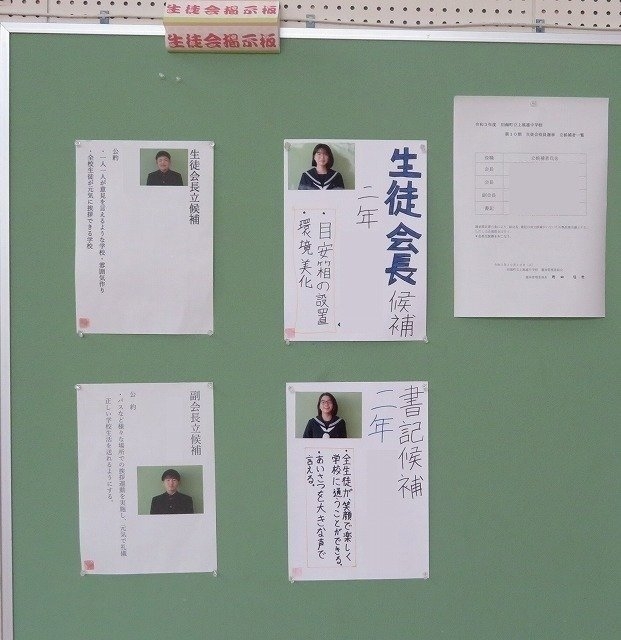 生徒会掲示板
生徒会掲示板
生徒会長立候補
公約
・一人一人が意見を言えるような学校・雰囲気作り
・全校生徒が元気に挨拶できる学校
生徒会長候補
二年
・目安箱の設置
・環境美化
副会長立候補
公約
・バスなど様々な場所での挨拶運動を実施し、元気で礼儀
正しい学校生活を送れるようにする。
書記候補
二年
・全生徒が笑顔で楽しく
学校に通うことができる。
・あいさつを大きな声で
言える。
役職
立候補者氏名
会長
会長
副会長
書記